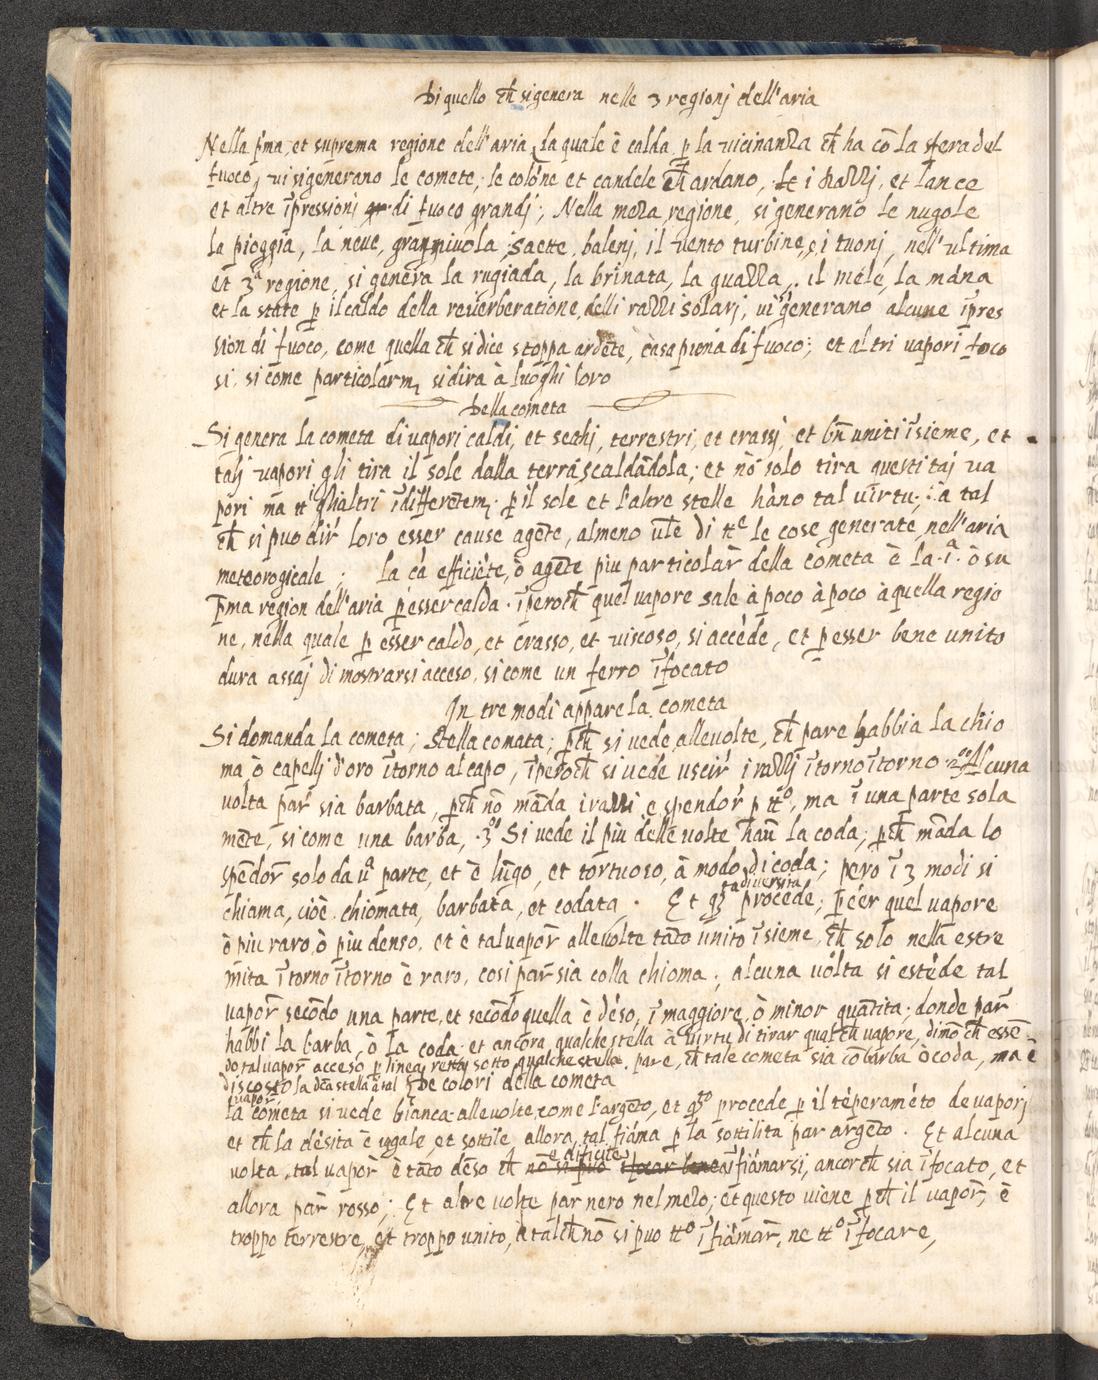 Di quello ch̃ si genera nelle 3 regionj dell'aria
Nella p̃ma, et suprema regione dell'aria, la quale è calda, p̱ la vicinanza ch̃ ha cõ la sfera del
fuoco, vi si generano le comete, le colõne et candele ch̃ ardano, et i razzi, et lance
et altre ĩpressioni di fuoco grandj; Nella meza regione, si generano le nugole
la pioggia, la neve, gragniuola, saette, balenj, il vento turbine, i tuonj, nell'ultima
et 3ᵃ regione, si genera la rugiada, la brinata, la guazza, il mele, la mãna
et la state p̱ il caldo della reverberatione, delli razzi solarj, vi si generano alcune ĩpres
sion di fuoco, come quella ch̃ si dice stoppa ardẽte, casa piena di fuoco; et altri vapori foco
si, si come particolarm̃, si dira à luoghi loro
Della cometa
Si genera la cometa di vapori caldi, et sechj, terrestri, et crassj, et bñ uniti ĩsieme, et
talj vapori gli tira il sole dalla terra scaldãdola; et nõ solo tira questi taj va
pori ma tͭⁱ gli altri ĩdifferẽtem̃; p̱ il sole et l'altre stelle hãno tal virtu; a tal
ch̃ si puo dir̃ loro esser cause agẽte, almeno ule di tᵗᵉ le cose generate, nell'aria
meteorogicale; la cã efficiẽte, ò agẽte piu particolar̃ della cometa è la .iᵃ. ò su
p̃ma region dell'aria p̱ esser calda. ĩperoch̃ quel vapore sale à poco à poco à quella regio
ne, nella quale p̱ esser caldo, et crasso, et viscoso, si accẽde, et p̱ esser bene unito
dura assaj di mostrarsi acceso, si come un ferro ĩfocato
In tre modi appare la cometa
Si domanda la cometa; stella comata; p̱ch̃ si vede alle volte, ch̃ pare habbia la chio
ma, ò capellj d'oro ĩtorno al capo, ĩperoch̃ si vede uscir̃ i razzj ĩtorno ĩtorno 2º Alcuna
volta par̃ sia barbata, p̱ch̃ nõ mãda i razzi e spendor̃ p̱ tᵗº, ma ĩ una parte sola
mẽte, si come una barba, .3º Si vede il più delle volte hau̇ la coda; p̱ch̃ mãda lo
spẽdor̃ solo da ũᵃ parte, et è lũgo, et tortuoso, à modo di coda; pero ĩ 3 modi si
chiama, cioè. chiomata, barbata, et codata. Et q̃sta diversita procede; p̱ eẽr quel vapore
ò piu raro, ò più denso, et è tal vapor̃ alle volte tãto unito ĩsieme, ch̃ solo nella estre
mita ĩtorno ĩtorno è raro, cosi par̃ sia colla chioma; alcuna volta si estẽde tal
vapor̃ secõdo una parte, et secõdo quella è dẽso, ĩ maggiore, ò minor quãtita; donde par̃
habbi la barba, ò la coda, et ancora qualche stella à virtu di tirar qualch̃ vapore, dimõ ch̃ essẽ
do tal vapor acceso p̱ linea retta sotto qualche stella. pare, ch̃ tale cometa sia cõ barba ò coda, ma è
discosto la dc̃a stella à tal vapor̃
De colori della cometa
La cometa si vede bianca alle volte, come l'argẽto, et q̃sto procede p̱ il tẽperamẽto de vaporj
et ch̃ la dẽsita è ugale, et sottile, allora, tal fiãma p̱ la sottilita par argẽto. Et alcuna
volta, tal vapor è tãto dẽso ch̃ nõ si puo ĩfocar bene è dificile ĩfiãmarsi, ancorch̃ sia ĩfocato, et
allora par̃ rosso; Et altre volte par nero nel mezo; et questo viene p̱ch̃ il vapor̃, è
troppo terrestre, et troppo unito, à tal ch̃ nõ si puo tᵗº ĩfiãmar̃, ne tᵗº ĩfocare,